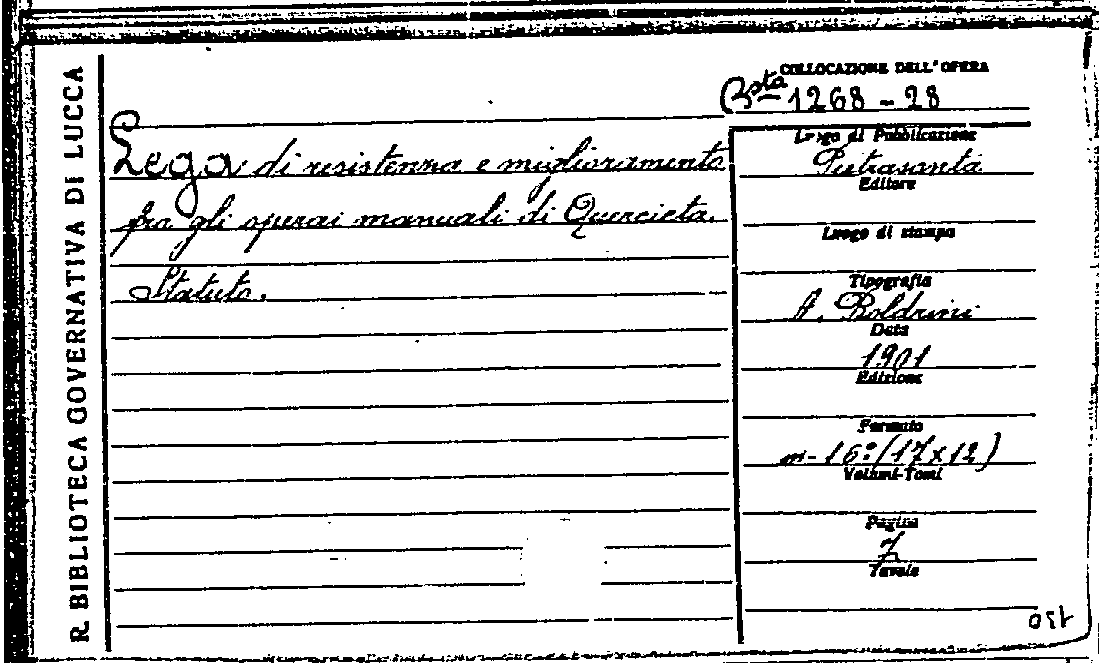 R. BIBLIOTECA GOVERNATIVA DI LUCCA
COLLOCAZIONE DELL'OPERA
Bsta 1268 - 28
Lega di resistenza e miglioramento
fra gli operai manuali di Querceta.
Statuto.
Luogo di Pubblicazione
Pietrasanta
Editore
Luogo di stampa
Tipografia
A. Boldrini
Data
1901
Edizione
Formato
in-16º (17x12)
Volumi-Tomi
Pagine
7
Tavole
150